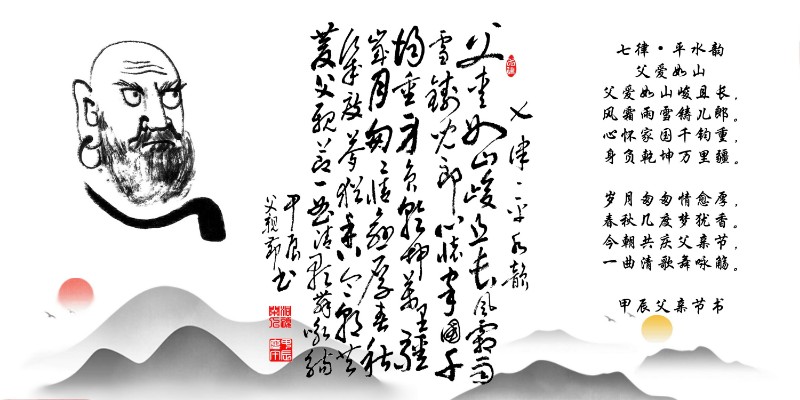 七律·平水韵
父爱如山
父爱如山峻且长，
风霜雨雪铸儿郎。
心怀家国千钧重，
身负乾坤万里疆。
岁月匆匆情愈厚，
春秋几度梦犹香。
今朝共庆父亲节，
一曲清歌舞咏觞。
甲辰父亲节书
七律·平水韵
父爱如山峻且长风霜雨
雪铸儿郎心怀家国千
钧重身负乾坤万里疆
岁月匆匆情愈厚春秋
几度梦犹香今朝共
庆父亲节一曲清歌舞咏觞
甲辰书
父亲节